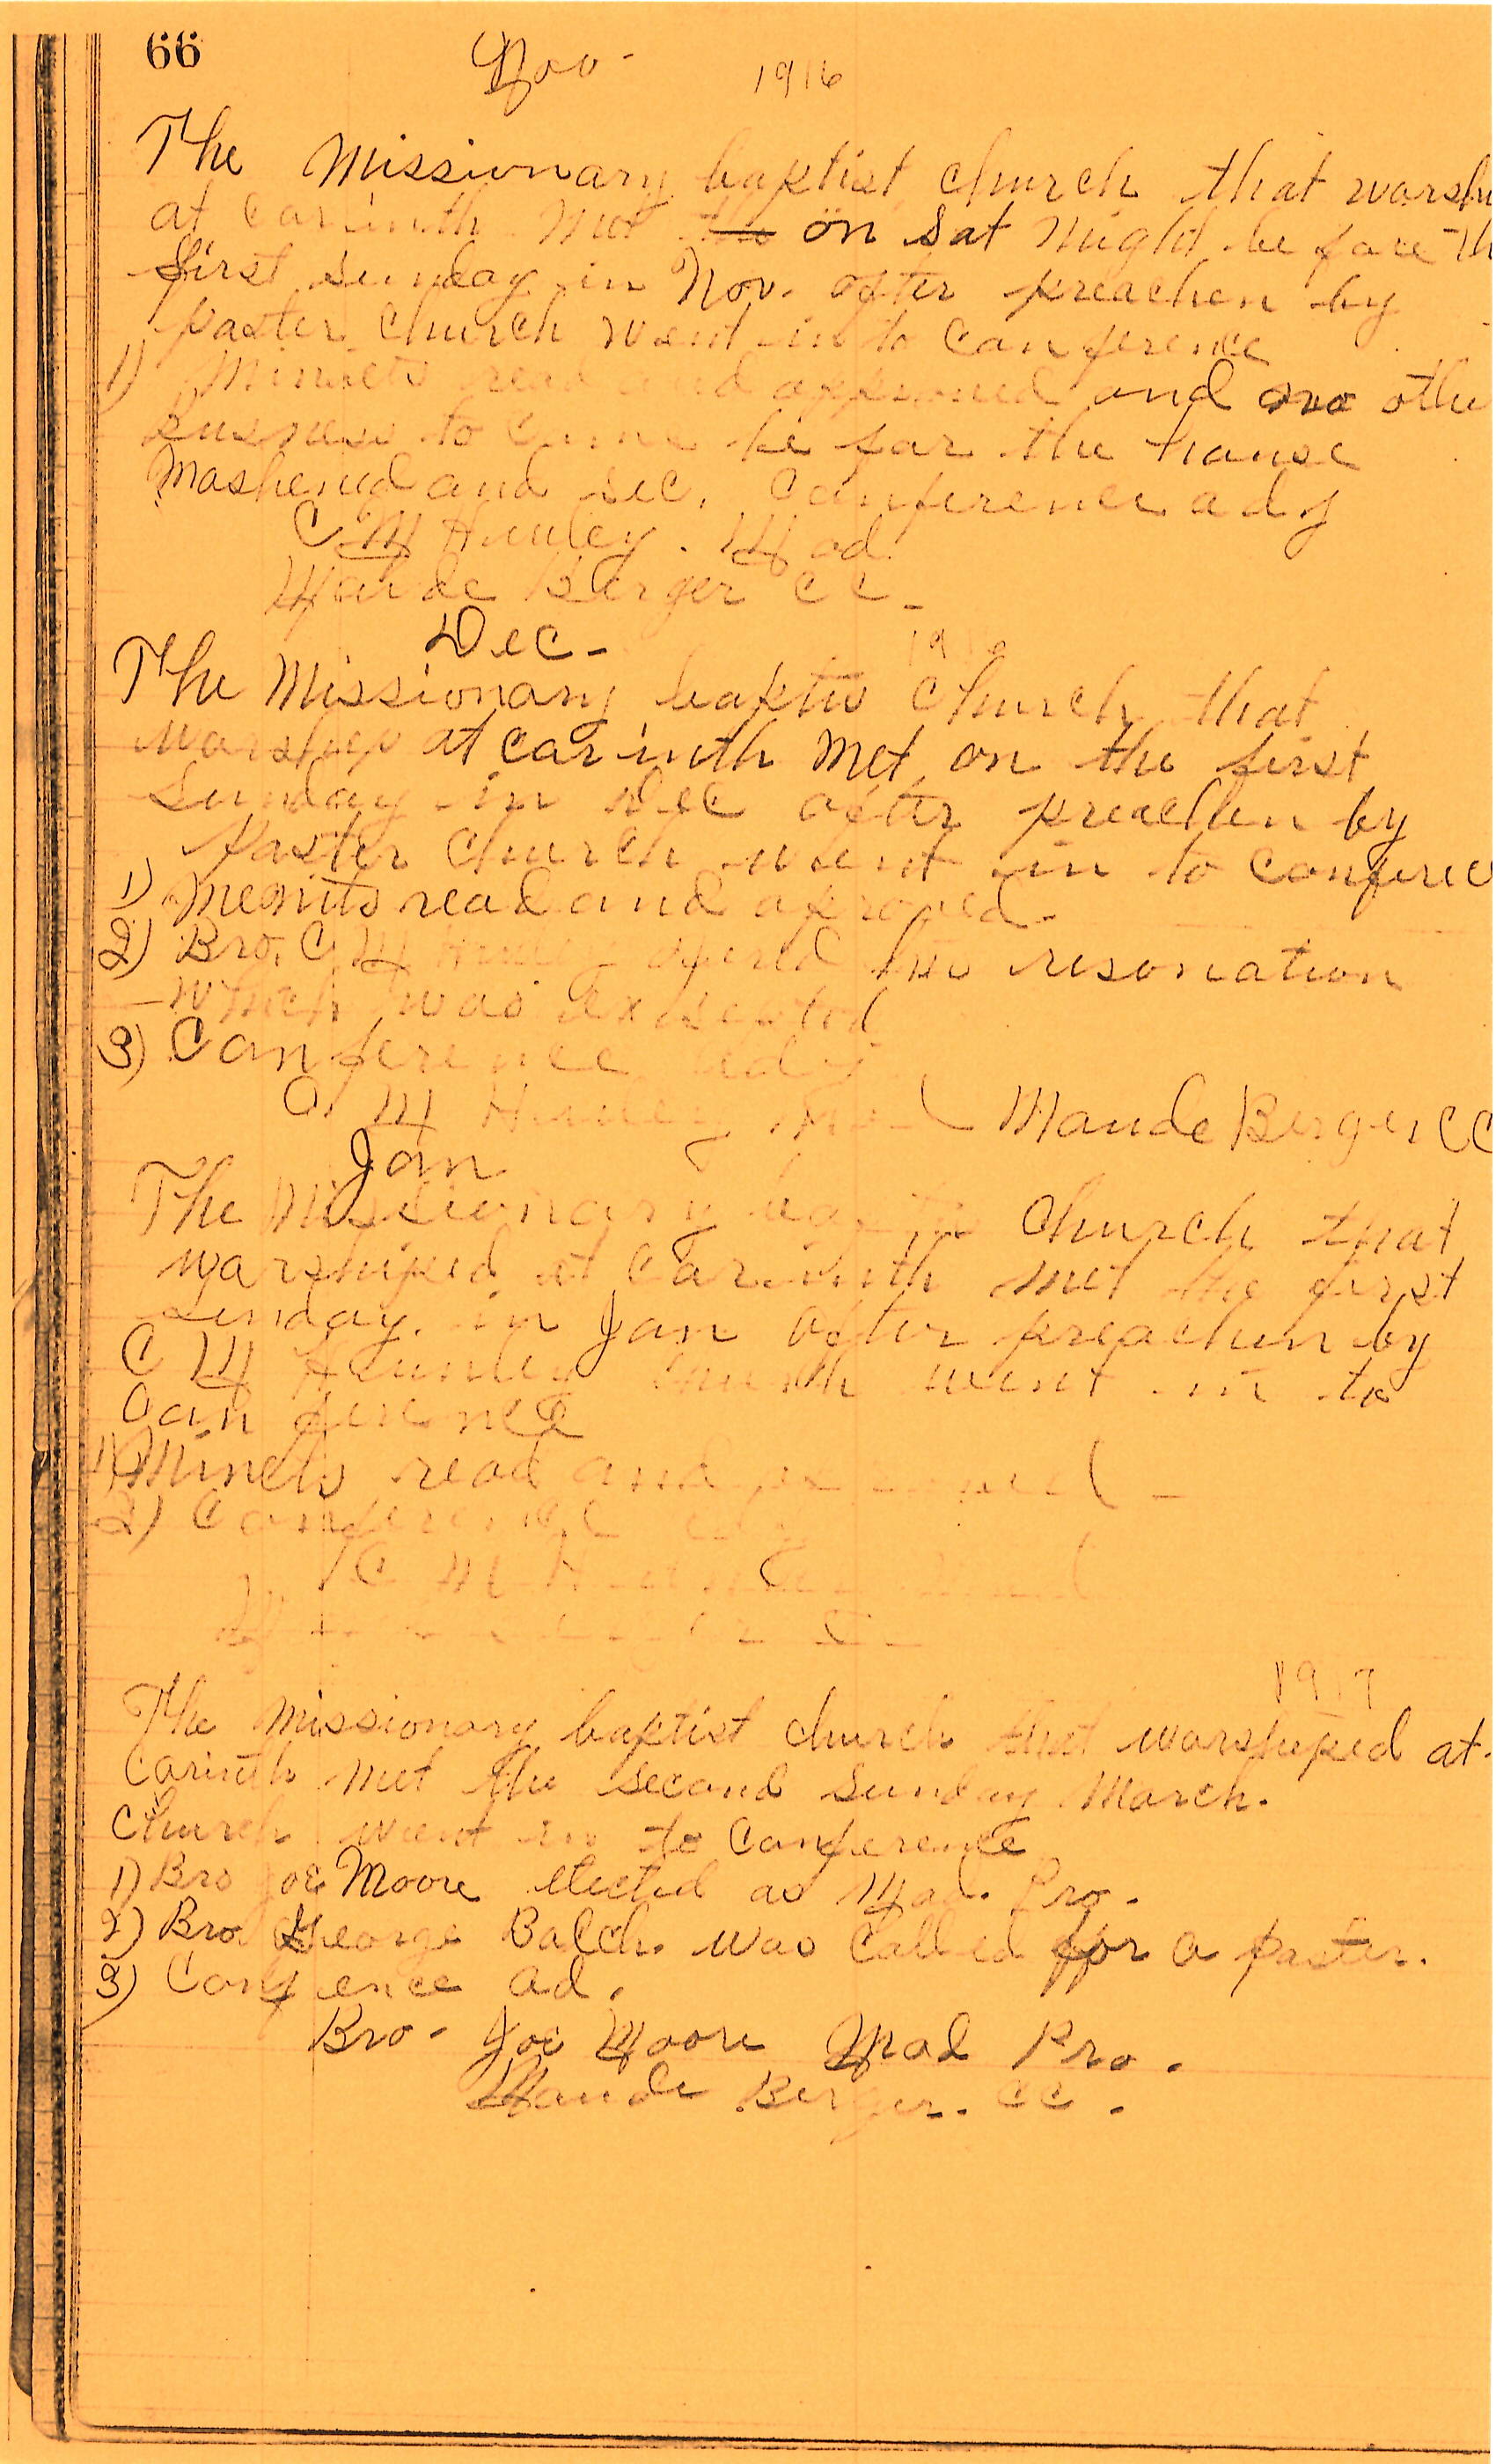 66
Nov - 1916
The Missionary baptist church that worshi
at carinth met the on Sat Night be fore Th
first Sunday in Nov. after preachen by
paster church went in to Canference
1) Minuets read and approved and no othe
Busness to come be far the house
Moshend and sec. Canference adj
C M Hunley. Mod.
Maude Berger CC -
Dec - 1916
The Missionary baptis Church that
warship at carinth Met on the first
Sunday in Dec after preachen by
paster Church went in to Conferec
1) Menuts read and aproved -
2) Bro. C M Hunley offered his resonation
which was excepted
3) Conference adj
C. M Hunley Mod Maude Berger CC
Jan
The Missionary baptis Church that
warshiped at Carinth met the first
Sunday. in Jan after preachen by
C M Hunley church went in to
Canference
1) Minets read and aproved -
2) Conference adj
C M
1917
The missionary baptist church that worshiped at
Carinth met the second Sunday March.
Church went in to Conference
1) Bro Joe Moore elected as Mod. Pro.
2) Bro George Balch. was Called for a paster.
3) Confence ad.
Bro - Joe Moore Mod Pro.
Maude Berger. CC.